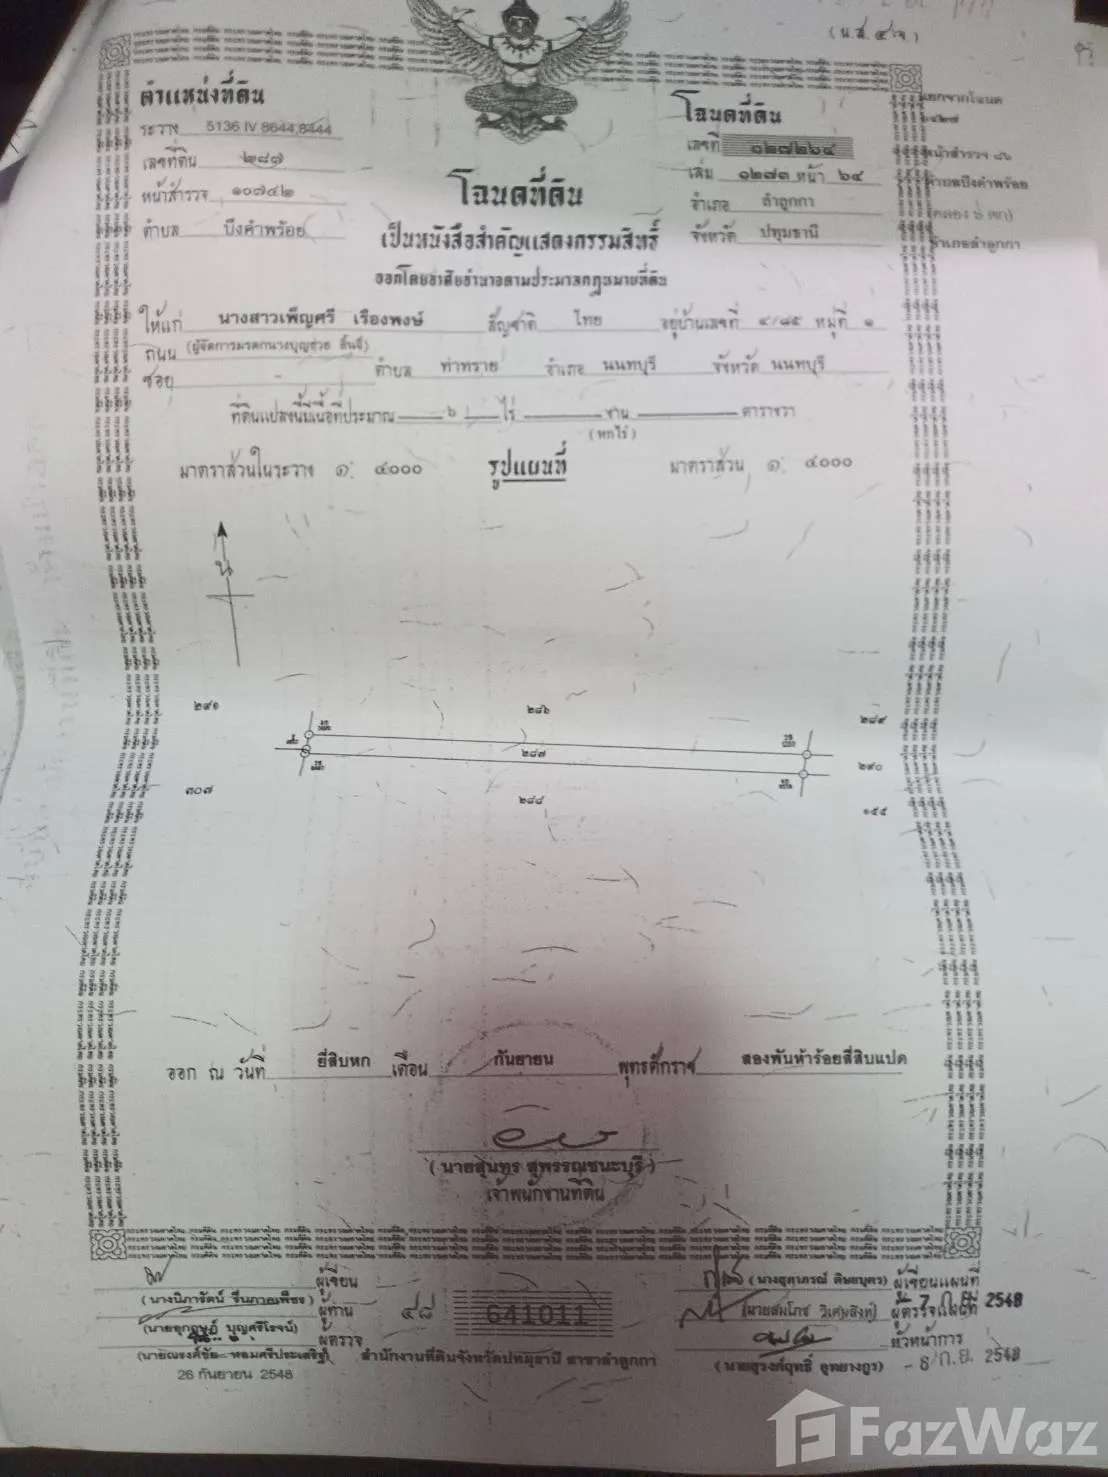 (น.ส.๔ จ)
ตำแหน่งที่ดิน
ระวาง 5136 IV 8644,8444
เลขที่ดิน ๒๘๗
หน้าสำรวจ ๑๐๗๔๒
ตำบล บึงคำพร้อย
โฉนดที่ดิน
เลขที่ ๑๒๗๒๖๔
เล่ม ๑๒๗๓ หน้า ๖๔
อำเภอ ลำลูกกา
จังหวัด ปทุมธานี
แยกจากโฉนด
หน้าสำรวจ ๘๖
ตำบลบึงคำพร้อย
(คลอง ๖ ตก)
อำเภอลำลูกกา
โฉนดที่ดิน
เป็นหนังสือสำคัญแสดงกรรมสิทธิ์
ออกโดยอาศัยอำนาจตามประมวลกฎหมายที่ดิน
ให้แก่ นางสาวเพ็ญศรี เรืองพงษ์ สัญชาติ ไทย อยู่บ้านเลขที่ ๔/๘๕ หมู่ที่ ๑
ถนน (ผู้จัดการมรดกนางบุญช่วย ลิ้นจี่)
ซอย - ตำบล ท่าทราย อำเภอ นนทบุรี จังหวัด นนทบุรี
ที่ดินแปลงนี้มีเนื้อที่ประมาณ ๖ ไร่ งาน ตารางวา
(หกไร่)
มาตราส่วนในระวาง ๑: ๔๐๐๐ รูปแผนที่ มาตราส่วน ๑: ๔๐๐๐
น
๒๙๑ ๒๘๖ ๒๘๙
๒๘๗ ๒๙๐
๓๐๗ ๒๘๘ ๑๕๕
ออก ณ วันที่ ยี่สิบหก เดือน กันยายน พุทธศักราช สองพันห้าร้อยสี่สิบแปด
(นายสุนทร สุพรรณชนะบุรี)
เจ้าพนักงานที่ดิน
ผู้เขียน
ผู้ทาน
ผู้ตรวจ
26 กันยายน 2548
๔๘ 641011
สำนักงานที่ดินจังหวัดปทุมธานี สาขาลำลูกกา
ผู้เขียนแผนที่
(นายสมโภช วิเศษสิงห์) ผู้ตรวจแผนที่ 7 ก.ย. 2548
หัวหน้าการ
- 8 ก.ย. 2548
FazWaz